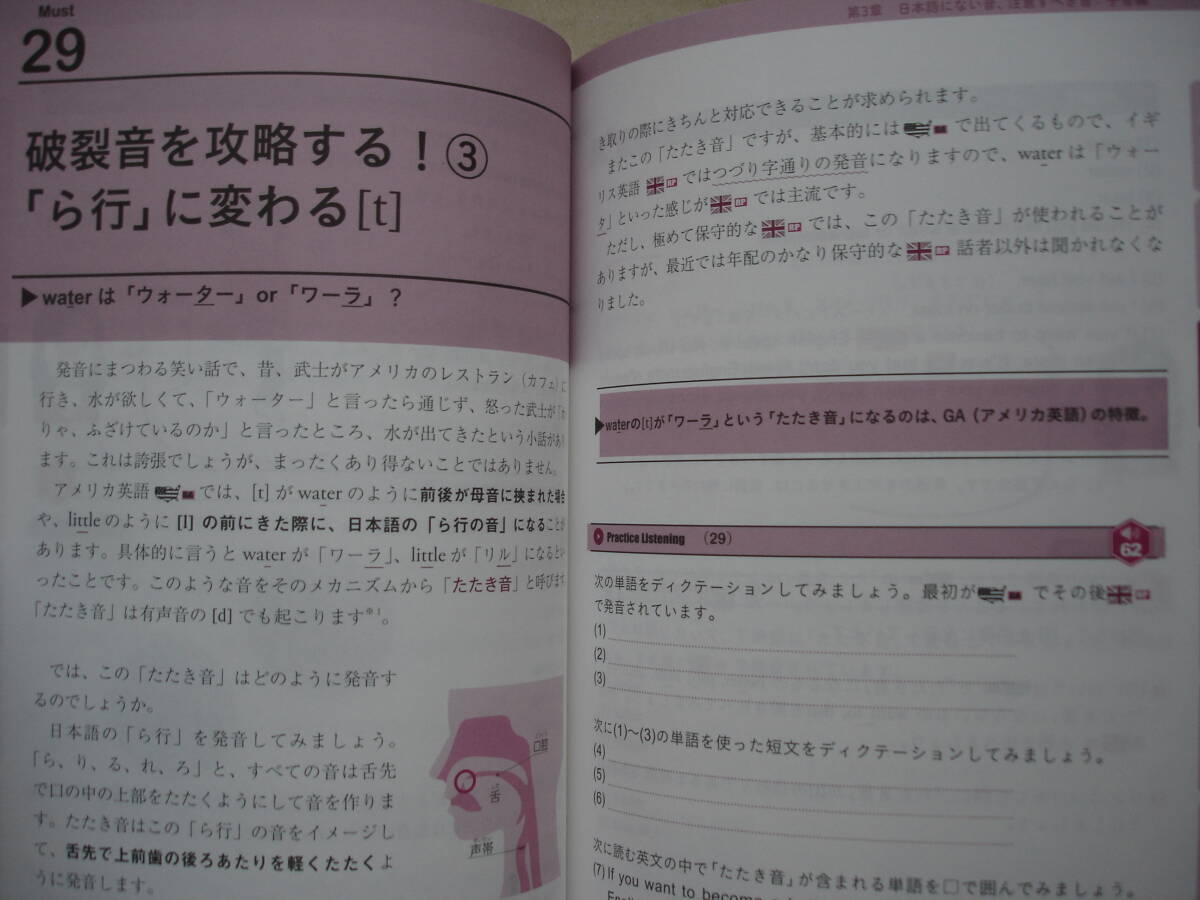 Must
29
破裂音を攻略する!③
「ら行」に変わる[t]
▶waterは「ウォーター」or「ワーラ」?
発音にまつわる笑い話で、昔、武士がアメリカのレストラン(カフェ)に
行き、水が欲しくて、「ウォーター」と言ったら通じず、怒った武士が「わ
りゃ、ふざけているのか」と言ったところ、水が出てきたという小話があり
ます。これは誇張でしょうが、まったくあり得ないことではありません。
アメリカ英語 では、[t]がwaterのように前後が母音に挟まれた場合
や、littleのように[l]の前にきた際に、日本語の「ら行の音」になることが
あります。具体的に言うとwaterが「ワーラ」、littleが「リル」になるとい
ったことです。このような音をそのメカニズムから「たたき音」と呼びます。
「たたき音」は有声音の[d]でも起こります※1。
では、この「たたき音」はどのように発音す
るのでしょうか。
日本語の「ら行」を発音してみましょう。
「ら、り、る、れ、ろ」と、すべての音は舌先
で口の中の上部をたたくようにして音を作りま
す。たたき音はこの「ら行」の音をイメージし
て、舌先で上前歯の後ろあたりを軽くたたくよ
うに発音します。
口腔
舌
声帯
第3章 日本語にない音、注意すべき音:子音編
き取りの際にきちんと対応できることが求められます。
またこの「たたき音」ですが、基本的には で出てくるもので、イギ
リス英語 RP ではつづり字通りの発音になりますので、waterは「ウォー
タ」といった感じが RP では主流です。
ただし、極めて保守的な RP では、この「たたき音」が使われることが
ありますが、最近では年配のかなり保守的な RP 話者以外は聞かれなくな
りました。
▶waterの[t]が「ワーラ」という「たたき音」になるのは、GA(アメリカ英語)の特徴。
Practice Listening (29)
62
次の単語をディクテーションしてみましょう。最初が でその後 RP
で発音されています。
(1)
(2)
(3)
次に(1)〜(3)の単語を使った短文をディクテーションしてみましょう。
(4)
(5)
(6)
次に読む英文の中で「たたき音」が含まれる単語を□で囲んでみましょう。
(7) If you want to become